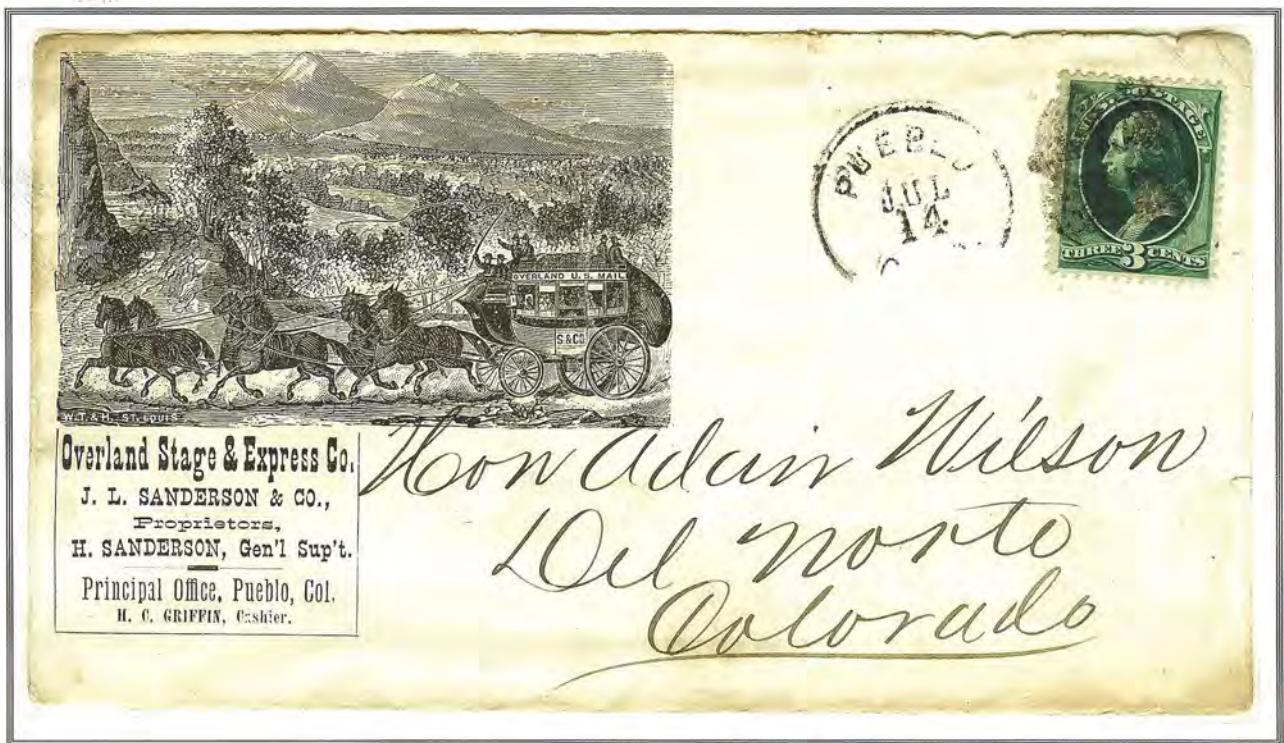 OVERLAND U.S. MAIL
S & CO
W.T. & H. ST. LOUIS
Overland Stage & Express Co.
J. L. SANDERSON & CO.,
Proprietors,
H. SANDERSON, Gen'l Sup't.
Principal Office, Pueblo, Col.
H. C. GRIFFIN, Cashier.
PUEBLO
JUL
14
U.S. POSTAGE
THREE 3 CENTS
Hon Adair Wilson
Del Norte
Colorado